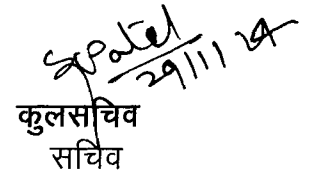 SPatel
29/11/24
कुलसचिव
सचिव